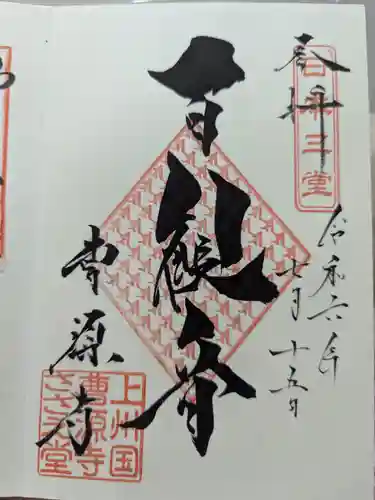 奉拝
日本三堂
令和六年
七月十五日
百観音
曹源寺
上州国
曹源寺
さゞえ堂